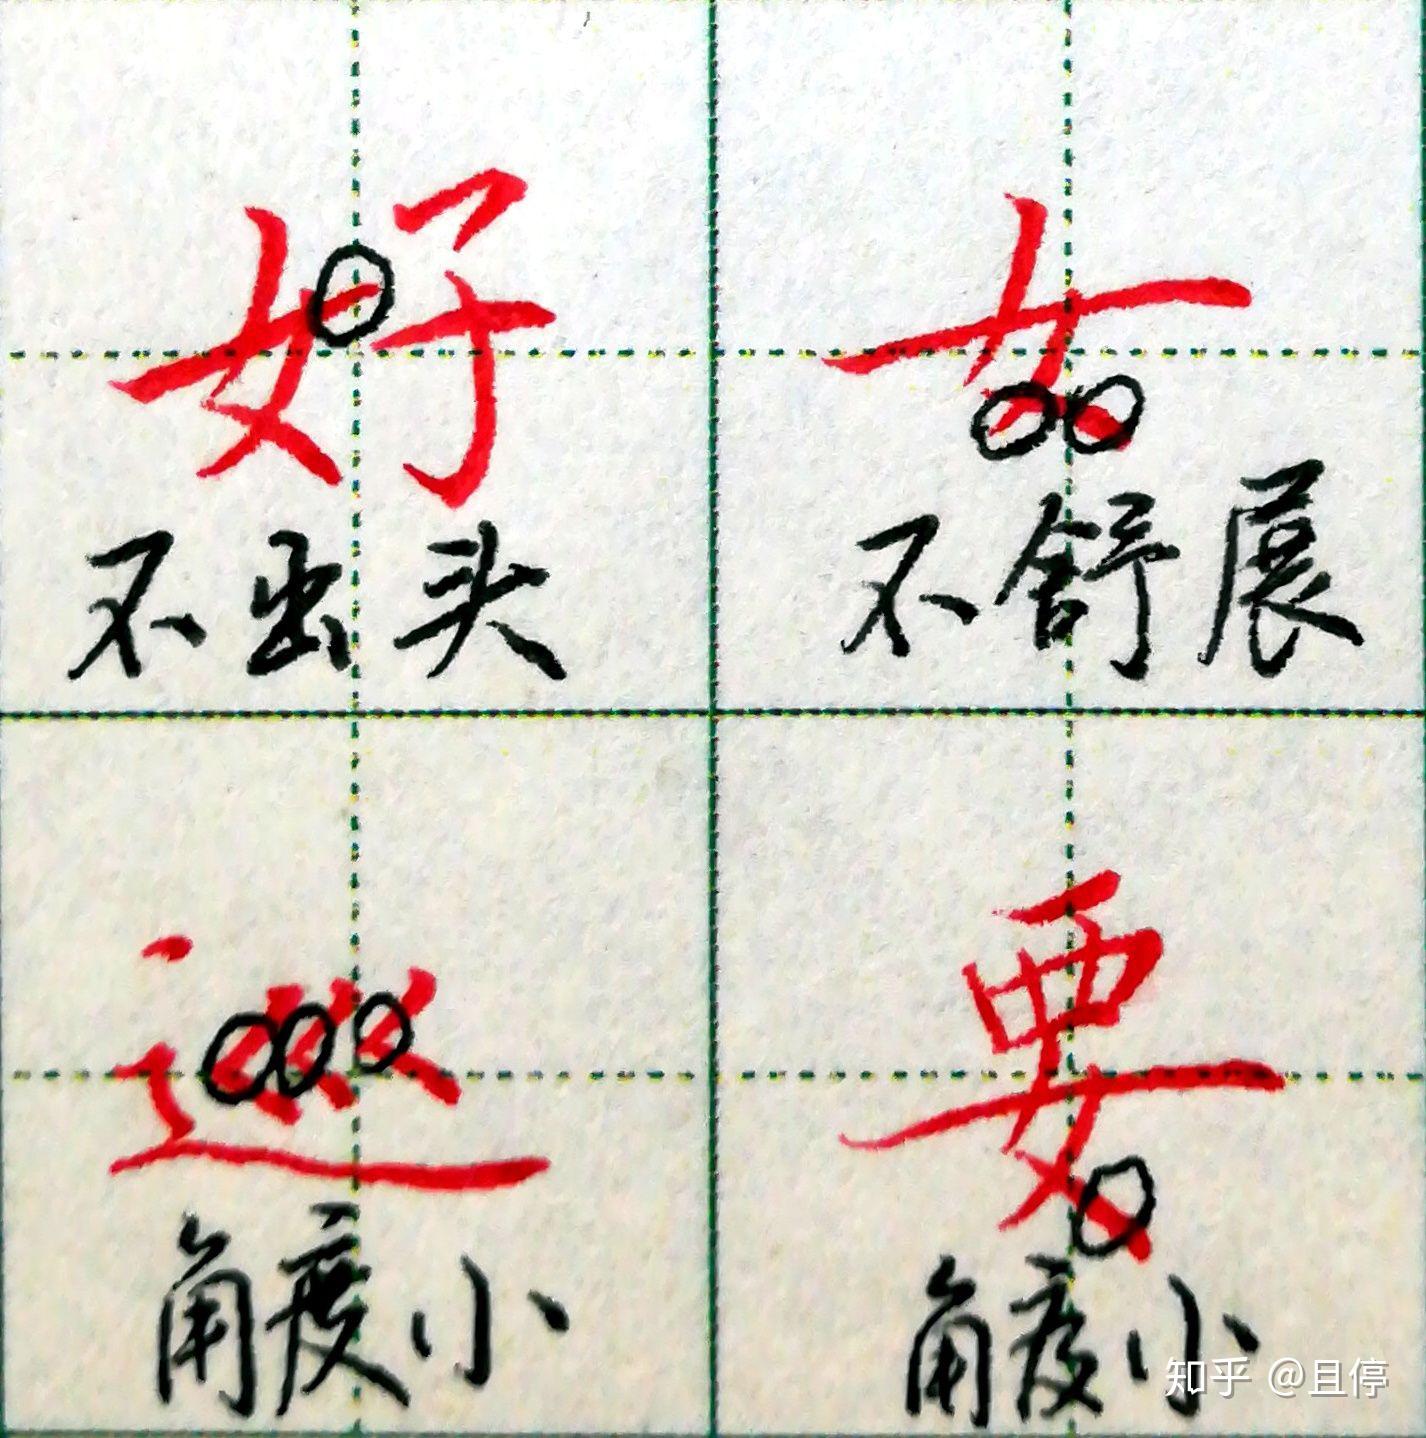 好 女
不出头 不舒展
巡 要
角度小 角度小
知乎 @且停